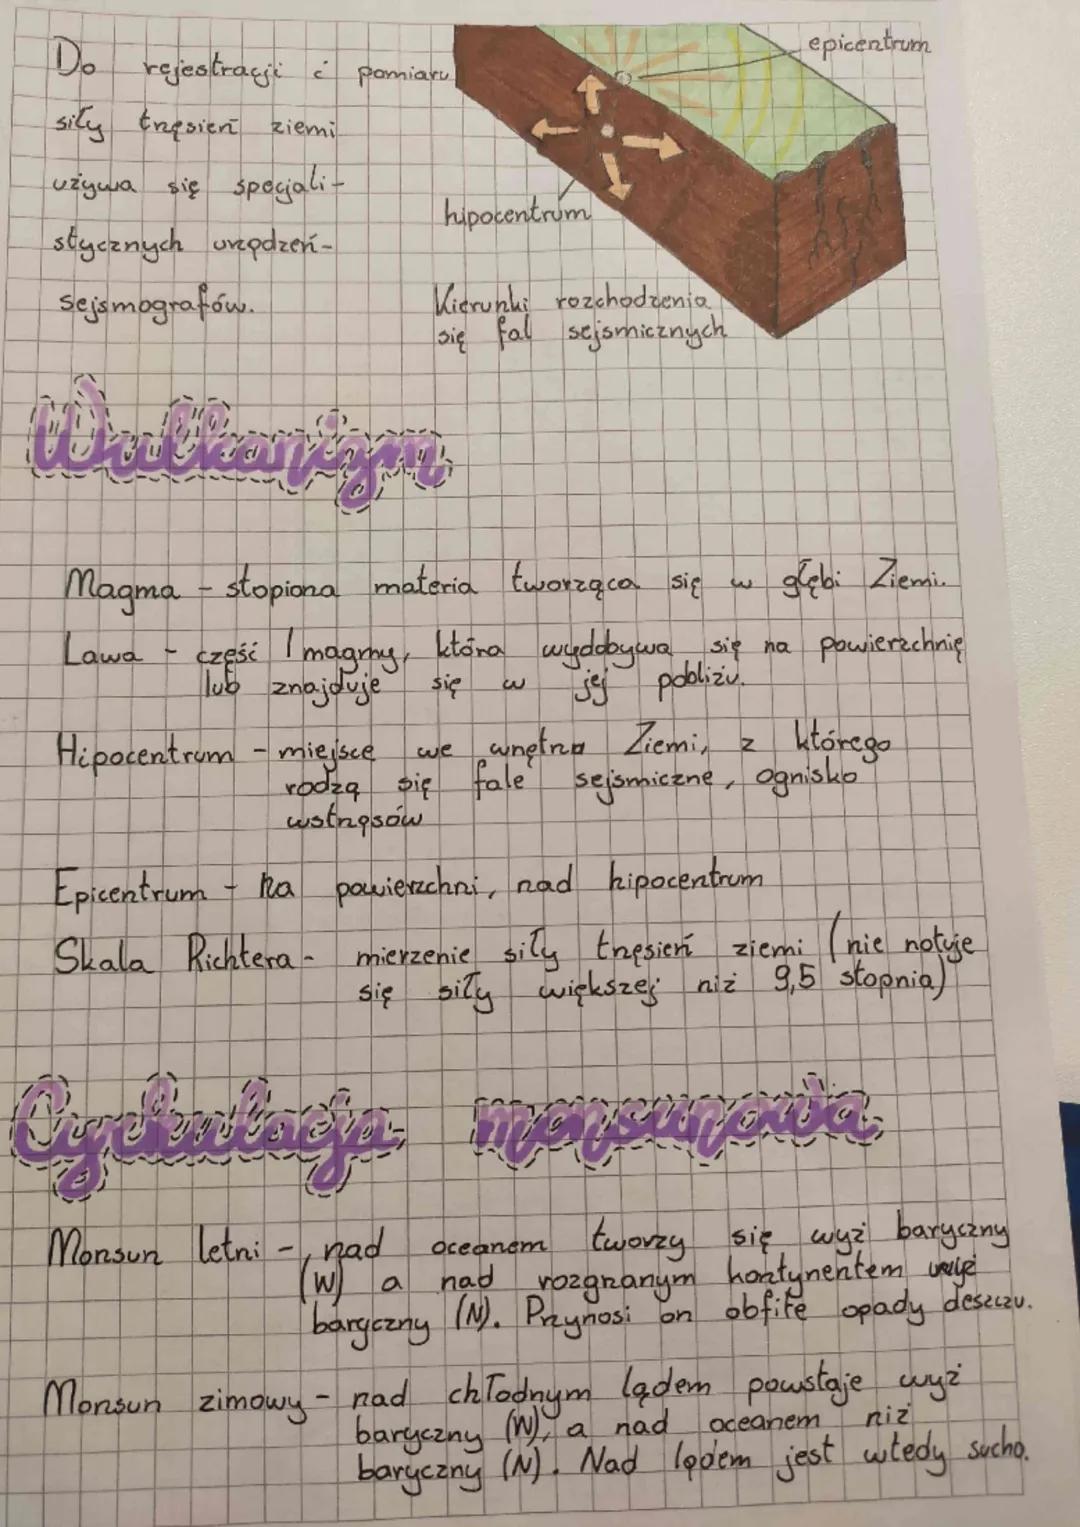 Do rejestracji i pomiaru
siły trzęsień ziemi
używa się specjali-
stycznych urządzeń-
sejsmografów.
epicentrum
hipocentrum
Kierunki rozchodzenia
się fal sejsmicznych
Wulkanizm
Magma - stopiona materia tworząca się w głębi Ziemi.
Lawa - część magmy, która wydobywa się na powierzchnię
lub znajduje się w jej pobliżu.
Hipocentrum - miejsce we wnętrzu Ziemi, z którego
rodzą się fale sejsmiczne, ognisko
wstrząsów
Epicentrum - na powierzchni, nad hipocentrum
Skala Richtera - mierzenie siły trzęsień ziemi (nie notuje
się siły większej niż 9,5 stopnia)
Cyrkulacja monsunowa
Monsun letni - nad oceanem tworzy się wyż baryczny
(W) a nad rozgrzanym kontynentem
baryczny (N). Przynosi on obfite opady deszczu.
Monsun zimowy - nad chłodnym lądem powstaje wyż
baryczny (W), a nad oceanem niż
baryczny (N). Nad lądem jest wtedy sucho.